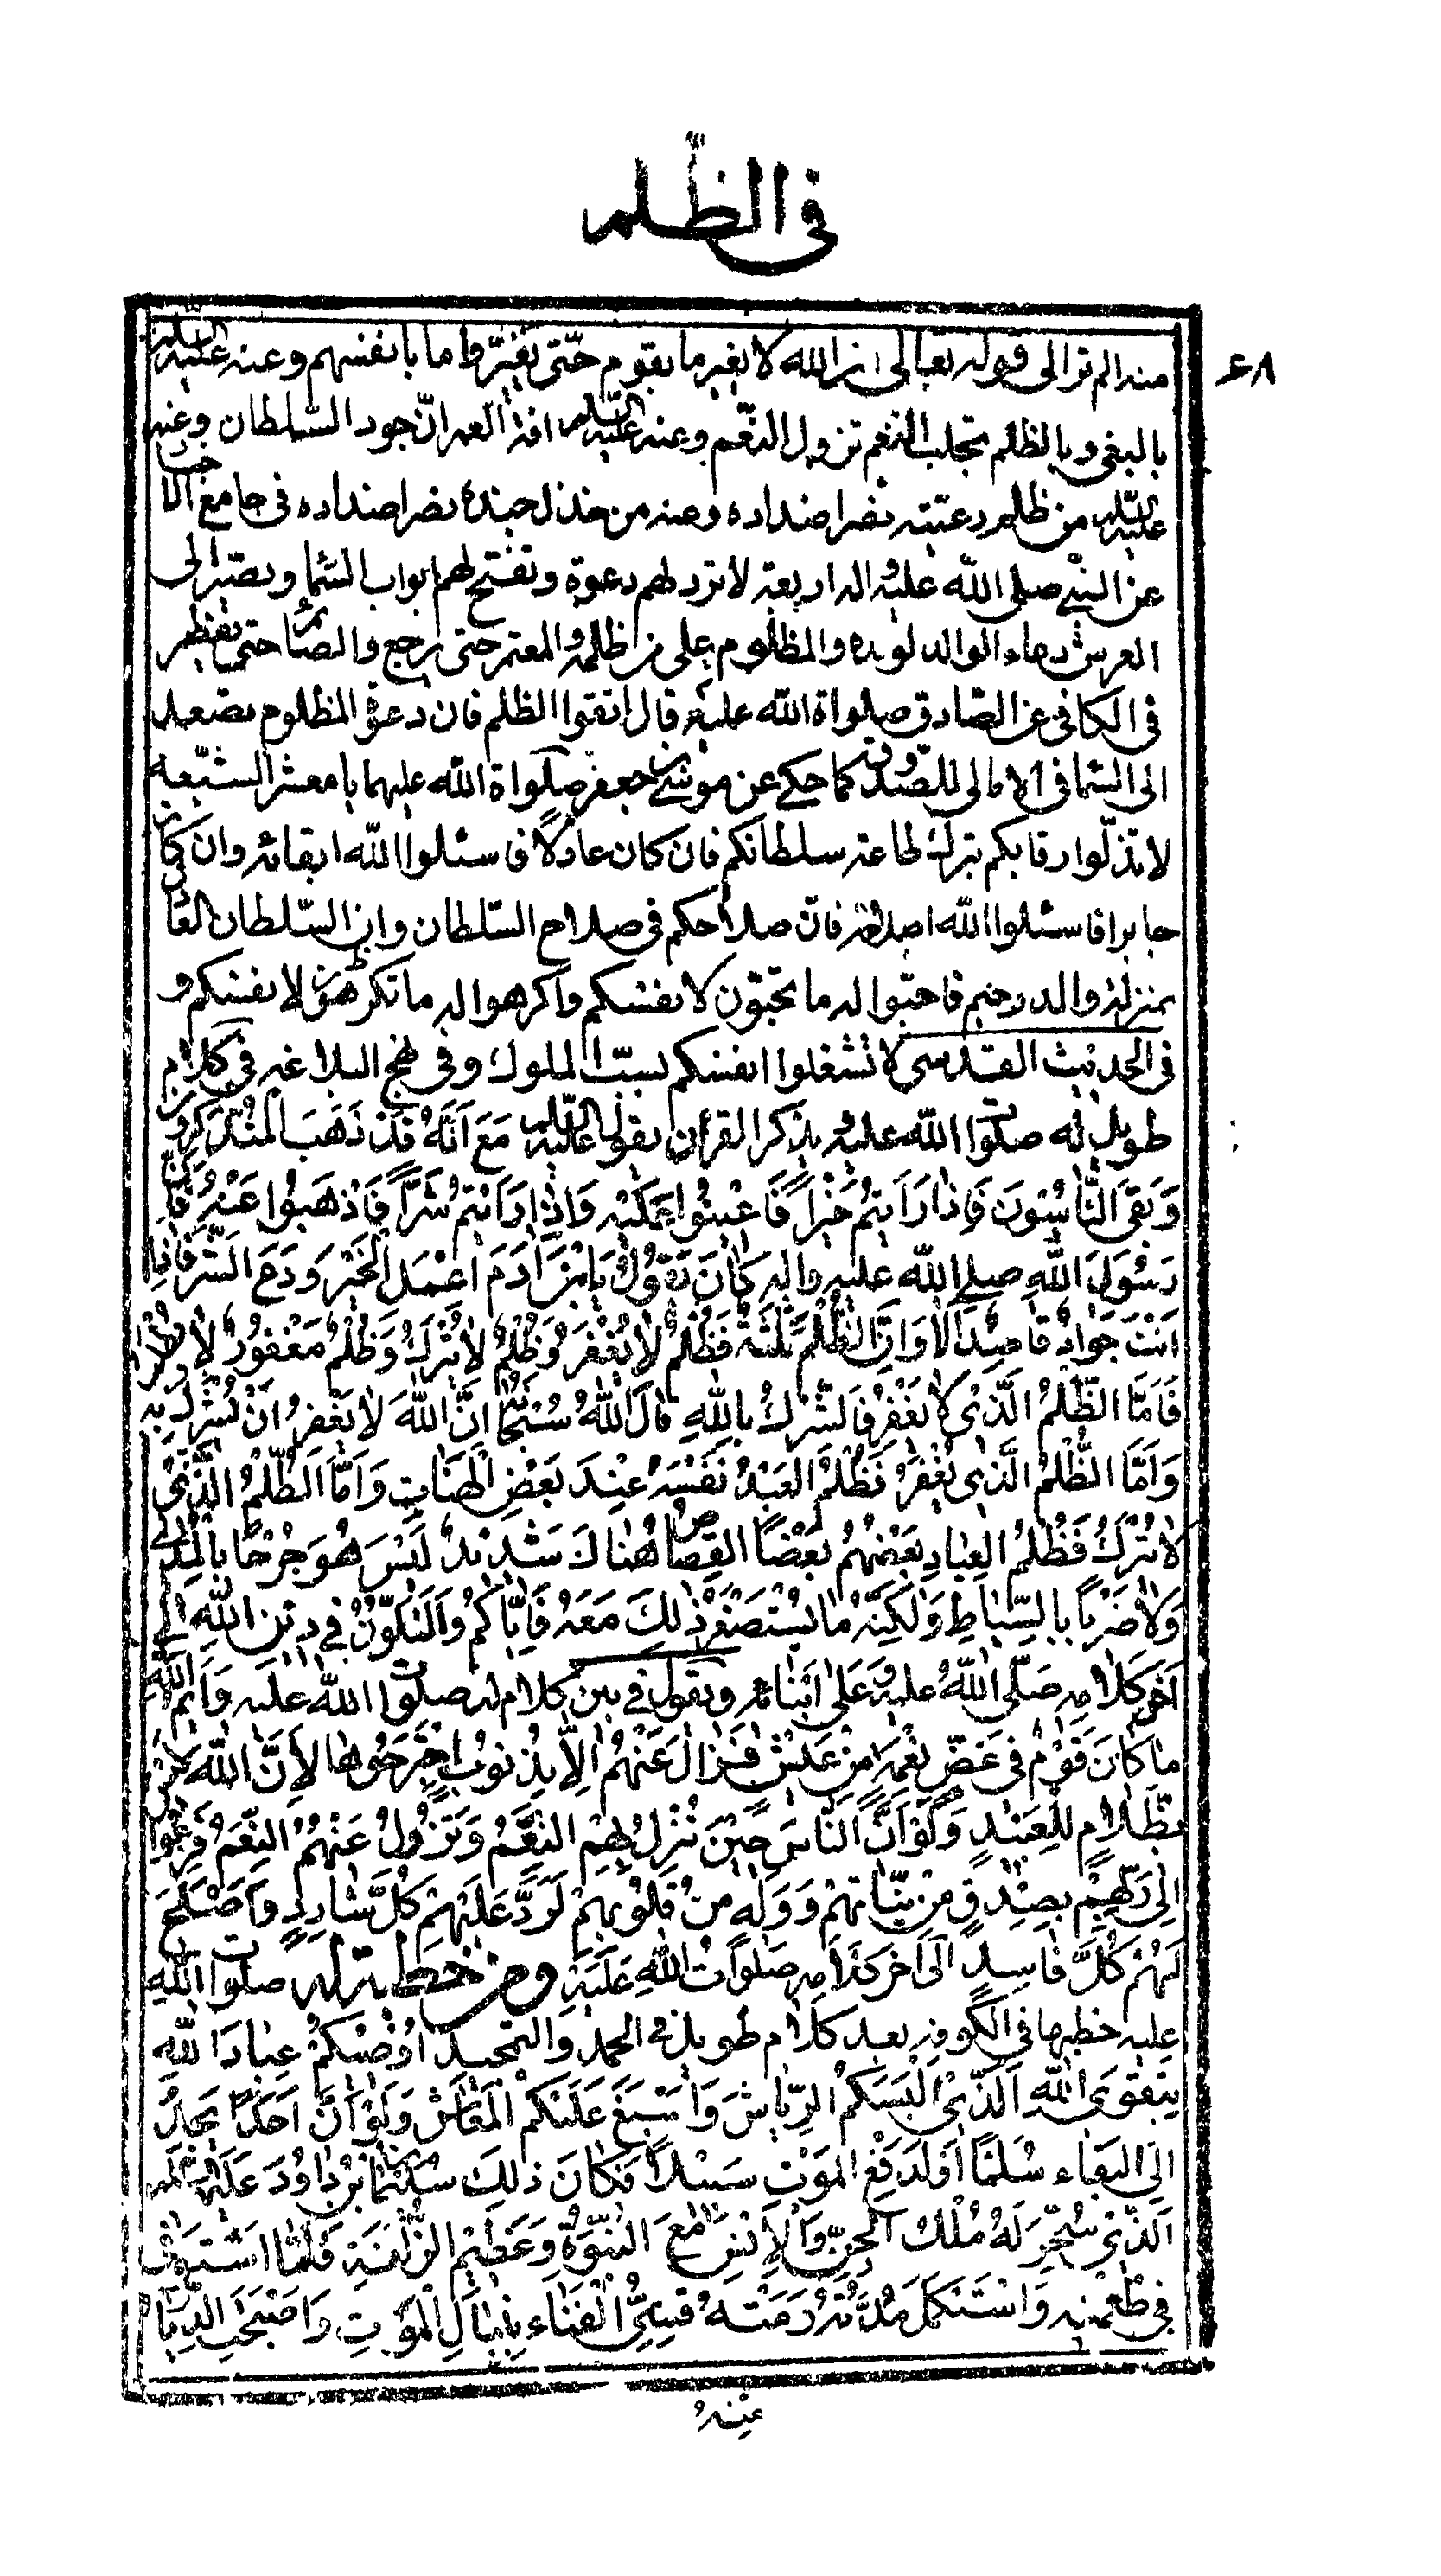 فی الظّلم
۶۸
منه الم تر الی قوله تعالی ان الله لا یغیر ما بقوم حتّی یغیّروا ما بانفسهم وعنه علیه السّلم
بالبغی و بالظلم تجلب النقم تزول النّعم وعنه علیه السّلم افة العمران جور السّلطان وعنه
علیه السّلم من ظلم رعیّته نصر اضداده وعنه من خذل جنده نصر اضداده فی جامع الاخبا
عن النبی صلی الله علیه واله اربعة لا ترد لهم دعوة وتفتح لهم ابواب السّما و تصیر الی
العرش دعاء الوالد لولده والمظلوم علی من ظلمه والمعتمر حتی یرجع والصّائم حتی یفطر
فی الکافی عن الصّادق صلواة الله علیه قال اتقوا الظلم فان دعوة المظلوم تصعد
الی السّما فی الامالی للصّدوق کما حکی عن موسی بن جعفر صلواة الله علیهما یا معشر الشّیعه
لا تذلّوا رقابکم بترک طاعة سلطانکم فان کان عادلاً فاسئلوا الله ابقائه وان کان
جایرا فاسئلوا الله اصلاحه فانّ صلاحکم فی صلاح السّلطان وان السّلطان العادل
بمنزلة والد رحیم فاحبّوا له ما تحبّون لانفسکم واکرهوا له ما تکرهون لانفسکم و
فی الحدیث القدسی لا تشغلوا انفسکم بسبّ الملوک و فی نهج البلاغه فی کلام
طویل له صلوات الله علیه یذکر القرآن یقول علیه السّلم مَعَ اَنَّهُ قَدْ ذَهَبَ الْمُتَذَکِّرُونَ
وَ بَقِیَ النّاسُونَ فَاِذا رَاَیتُم خَیْراً فَاَعْینُوا عَلَیْهِ وَاِذا رَاَیْتُم شَرّاً فَاذْهَبُوا عَنْهُ فَاِنَّ
رَسُولَ اللهِ صلی الله علیه واله کانَ یَقُولُ یَابْنَ آدَمَ اعْمَلِ الْخَیْرَ وَدَعِ الشَّرَّ فَاِذا
اَنْتَ جَوادٌ قاصِدٌ اَلا وَاِنَّ الظُّلْمَ ثَلٰثَةٌ فَظُلْمٌ لا یُغْفَرُ وَظُلْمٌ لا یُتْرَکُ وَظُلْمٌ مَغْفُورٌ لا یُطْلَبُ
فَاَمَّا الظُّلْمُ الَّذی لا یُغْفَرُ فَالشِّرْکُ بِاللهِ قالَ اللهُ سُبْحانَهُ اِنَّ اللهَ لا یَغْفِرُ اَنْ یُشْرَکَ بِهِ
وَاَمَّا الظُّلْمُ الَّذی یُغْفَرُ فَظُلْمُ الْعَبْدِ نَفْسَهُ عِنْدَ بَعْضِ الْهَناتِ وَاَمَّا الظُّلْمُ الَّذی
لا یُتْرَکُ فَظُلْمُ الْعِبادِ بَعْضُهُمْ بَعْضًا القِصاصُ هُناکَ شَدیدٌ لَیْسَ هُوَ جَرْحًا بِالْمُدٰی
وَلا ضَرْبًا بِالسِّیاطِ وَلٰکِنَّهُ ما یُسْتَصْغَرُ ذٰلِکَ مَعَهُ فَاِیّاکُم وَالتَّلَوُّنَ فی دینِ اللهِ الی
آخر کَلامه صَلّی اللهُ علیه وَعَلی اَبْنائه ویَقول فی بین کلام له صلوات الله علیه وَایْمُ اللهِ
ما کانَ قَوْمٌ فی غَضِّ نِعْمَةٍ مِنْ عَیْشٍ فَزالَ عَنْهُمْ اِلاّ بِذُنُوبٍ اجْتَرَحُوها لِاَنَّ اللهَ لَیْسَ
بِظَلّامٍ لِلْعَبیدِ وَلَوْ اَنَّ النّاسَ حینَ تَنْزِلُ بِهِمُ النِّقَمُ وَتَزُولُ عَنْهُمُ النِّعَمُ فَزِعُوا
اِلی رَبِّهِمْ بِصِدْقٍ مِنْ نِیّاتِهِمْ وَوَلَهٍ مِنْ قُلُوبِهِمْ لَرَدَّ عَلَیْهِمْ کُلَّ شارِدٍ وَاَصْلَحَ
لَهُمْ کُلَّ فاسِدٍ اِلی آخر کَلامِه صَلَواتُ اللهِ عَلَیْهِ ومن خطبة له صلوات الله
علیه خطبها فی الکوفه بعد کلام طویل فی الحمد والتمجید اُوصیکُمْ عِبادَ اللهِ
بِتَقْوَی اللهِ الَّذی اَلْبَسَکُمُ الرِّیاشَ وَاَسْبَغَ عَلَیْکُمُ الْمَعاشَ وَلَوْ اَنَّ اَحَدًا یَجِدُ
اِلَی الْبَقاء سُلَّمًا اَوْ لِدَفْعِ الْمَوْتِ سَبیلاً لَکانَ ذٰلِکَ سُلَیْمانَ بْنَ داوُدَ عَلَیْهِ السَّلَم
الَّذی سُخِّرَ لَهُ مُلْکُ الْجِنِّ وَالْاِنْسِ مَعَ النُّبُوَّةِ وَعَظیمِ الزُّلْفَةِ فَلَمَّا اسْتَوْفی
فی طُعْمَته وَاسْتَکْمَلَ مُدَّتَهُ رَمَتْهُ قِسِیُّ الْفَناء بِنِبالِ الْمَوْتِ وَاَصْبَحَتِ الدِّیارُ
مِنْهُ